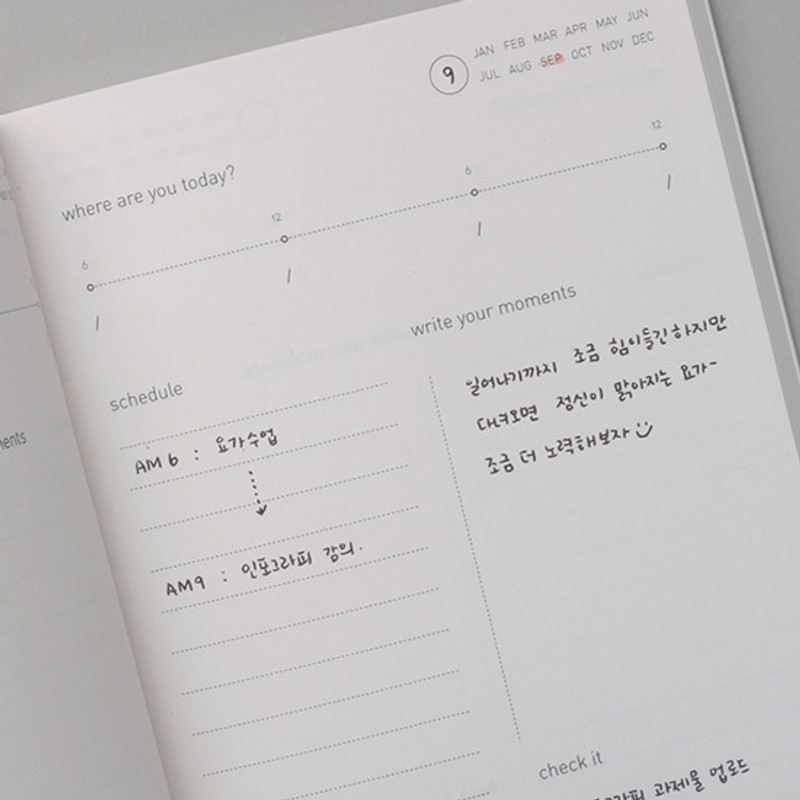 9
JAN FEB MAR APR MAY JUN
JUL AUG SEP OCT NOV DEC
where are you today?
6 12 6 12
/ / / /
schedule
AM 6 : 요가수업
AM 9 : 인포그라피 강의.
write your moments
일어나기까지 조금 힘이들긴하지만
다녀오면 정신이 맑아지는 요가~
조금 더 노력해보자
check it
그라피 과제물 업로드
ments